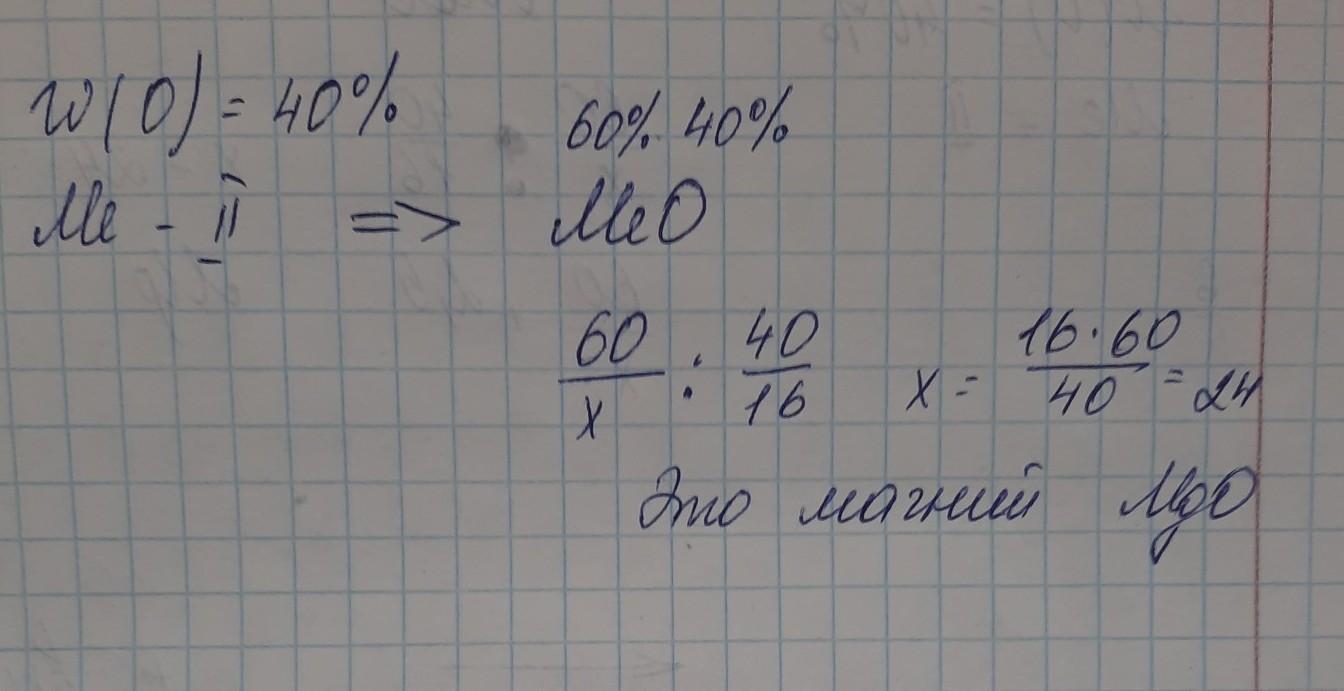 W(O) = 40% 60% 40%
Me - II => MeO
60/x : 40/16 x = 16·60/40 = 24
Это магний MgO